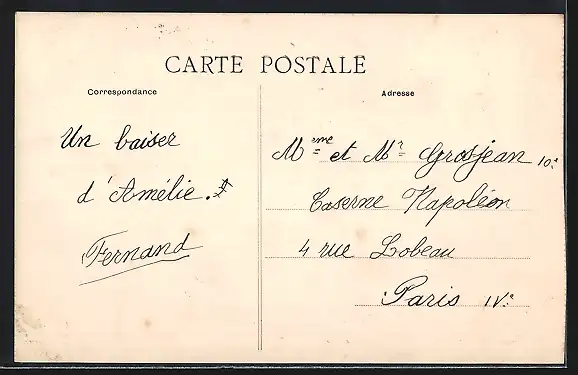 CARTE POSTALE
Correspondance
Adresse
Un baiser
d'Amélie.
Fernand
Mme et Mr Grosjean 10e
Caserne Napoléon
4 rue Lobeau
Paris IVe